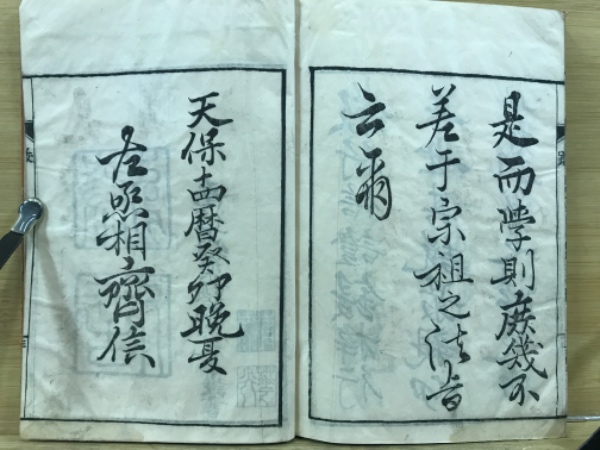 是而学則庶幾不
差于宗祖之法旨
云爾
天保十四暦癸卯晩夏
左照相齊信